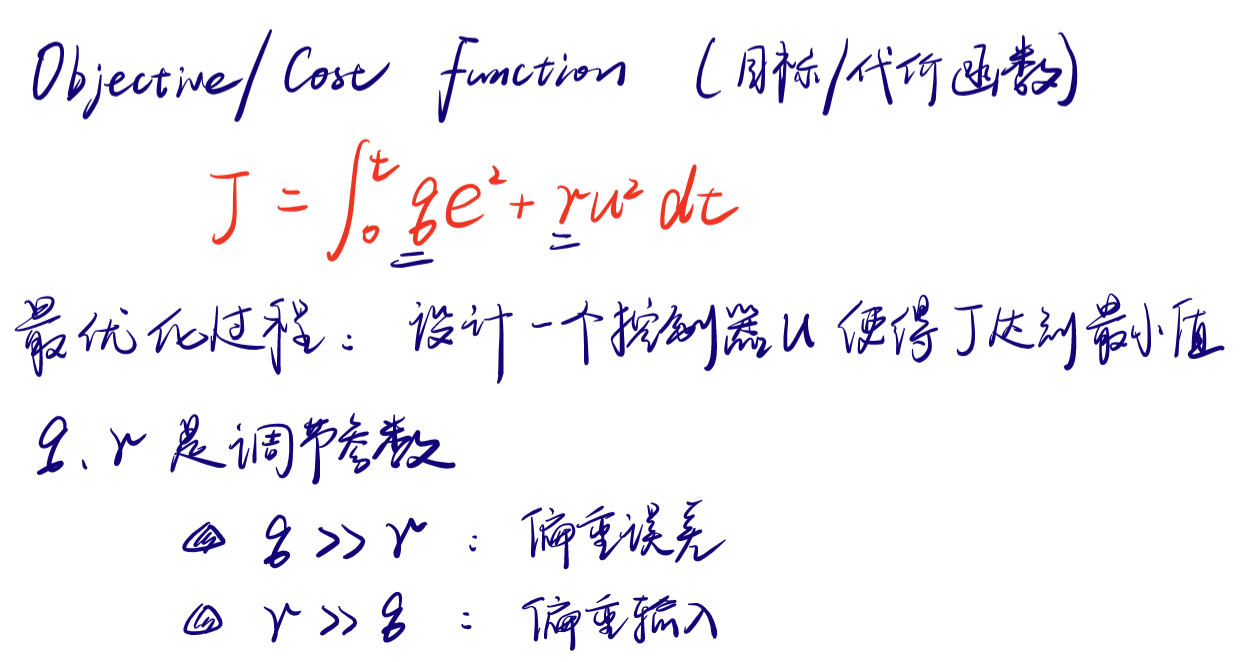 Objective/Cost function (目标/代价函数)
J = ∫₀ᵗ qe² + ru² dt
最优化过程：设计一个控制器u使得J达到最小值
q、r 是调节参数
q >> r : 偏重误差
r >> q : 偏重输入